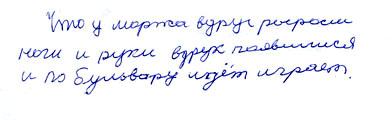 Что у моржа вдруг рогросли
ноги и руки вдрук появилися
и по бульвару идёт играет.